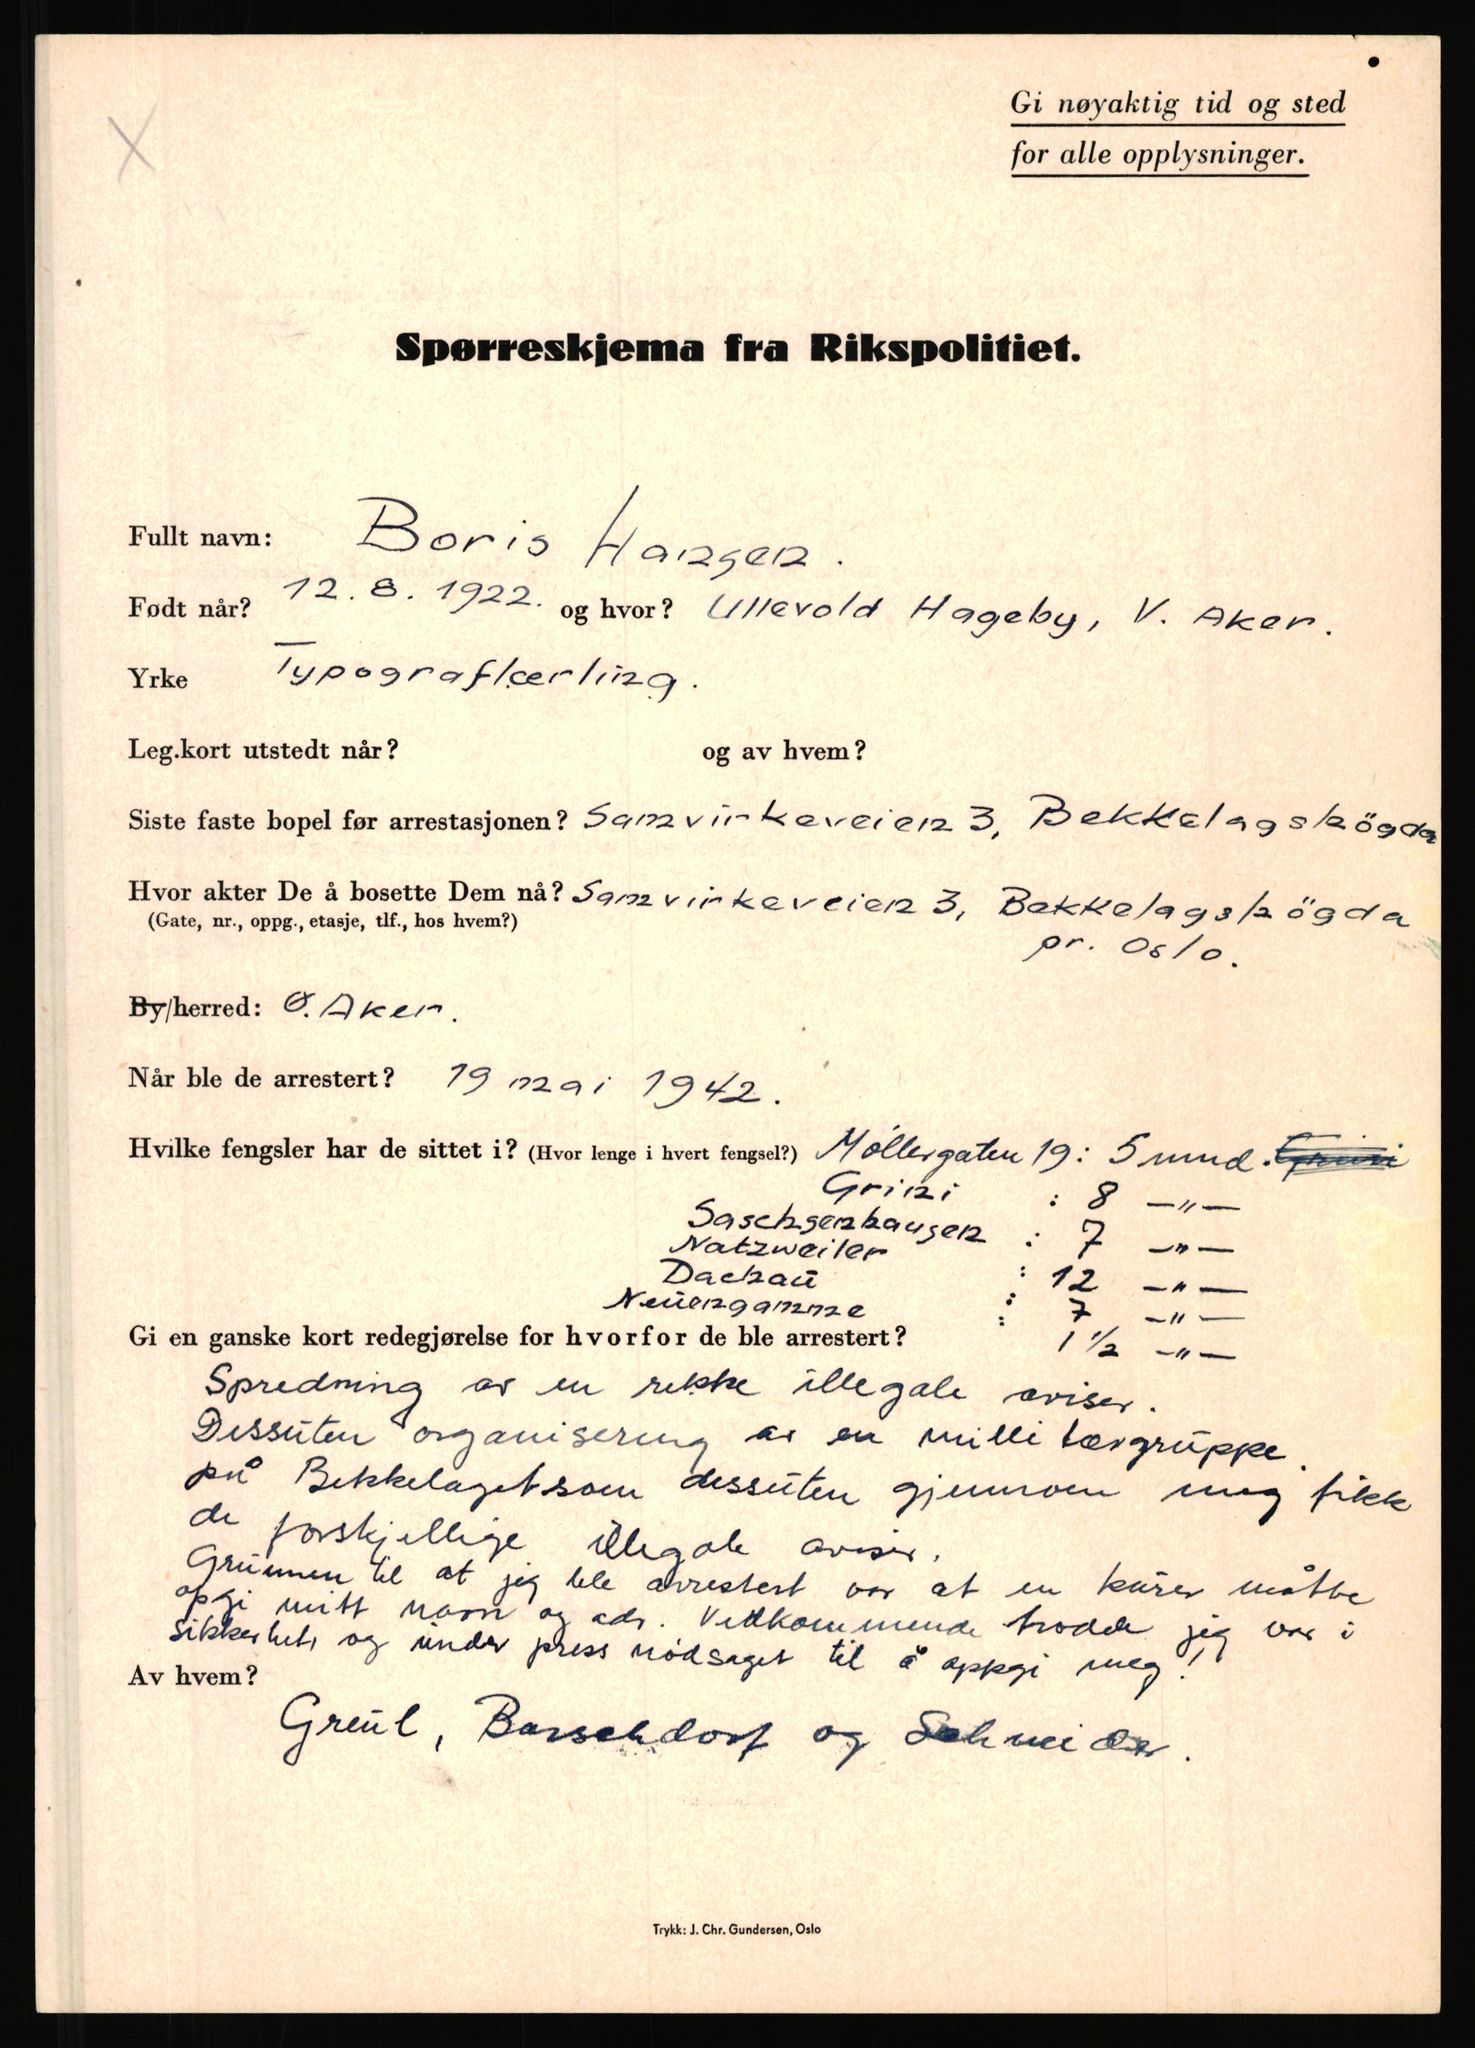 Gi nøyaktig tid og sted
for alle opplysninger.
Spørreskjema fra Rikspolitiet.
Fullt navn: Boris Hansen.
Født når? 12. 8. 1922. og hvor? Ullevold Hageby, V. Aker.
Yrke Typograflærling.
Leg.kort utstedt når? og av hvem?
Siste faste bopel før arrestasjonen? Samvirkeveien 3, Bekkelagshögda
Hvor akter De å bosette Dem nå? Samvirkeveien 3, Bekkelagshögda
(Gate, nr., oppg., etasje, tlf., hos hvem?)
pr. Oslo.
By/herred: Ø. Aker.
Når ble de arrestert? 19 mai 1942.
Hvilke fengsler har de sittet i? (Hvor lenge i hvert fengsel?) Møllergaten 19: 5 mnd. Grini
Grini : 8 —"—
Sachsenhausen : 7 —"—
Natzweiler : 12 —"—
Dachaŭ : 7 —"—
Neŭengamme : 1 1/2 —"—
Gi en ganske kort redegjørelse for hvorfor de ble arrestert?
Spredning av en rekke illegale aviser.
Dessŭten organisering av en millitærgrŭppe
på Bekkelaget som dessŭten gjennom meg fikk
de forskjellige illegale aviser.
Grŭnnen til at jeg ble arrestert var at en kŭrer måtte
opgi mitt navn og adr. Vedkommende trodde jeg var i
sikkerhet og ŭnder press nødsaget til å oppgi meg!
Av hvem?
Greŭl, Barschdorf og Schneider.
Trykk: J. Chr. Gundersen, Oslo